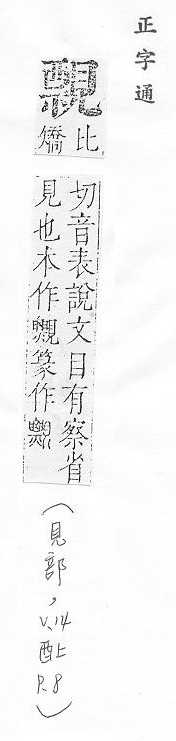 正字通
䙳
比矯
切音表說文目有察省
見也本作篆作
(見部, V.14 酉上 P.8)